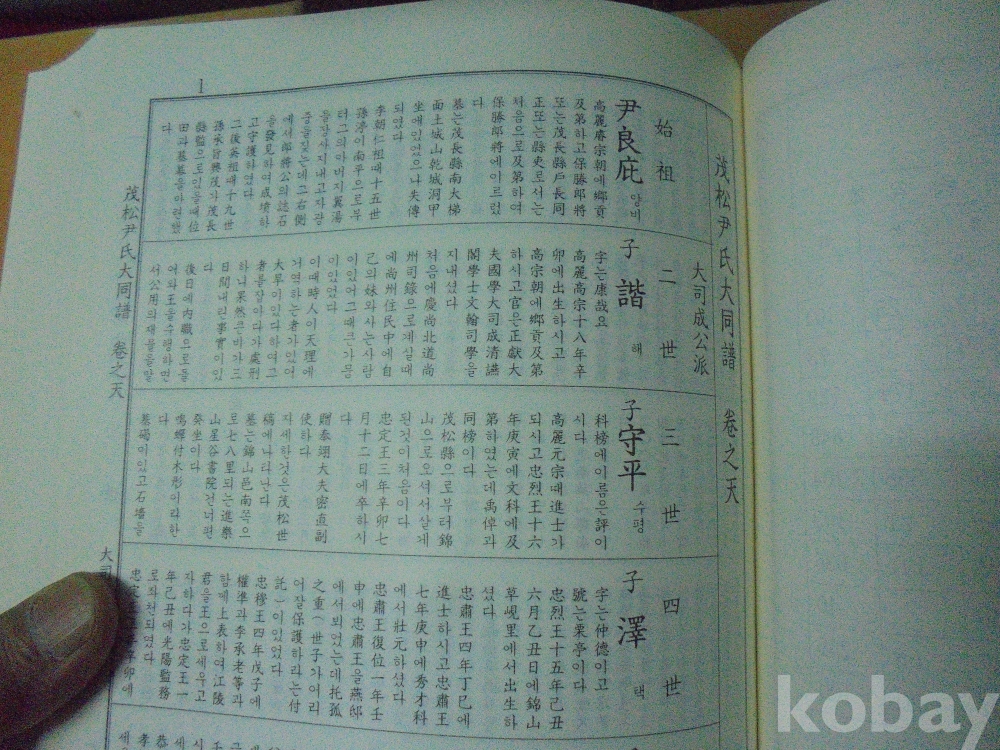 茂松尹氏大同譜 卷之天
大司成公派
1
始祖
尹良庇 양비
高麗睿宗朝에鄕貢
及第하고保勝郎將
또는茂長縣戶長同
正또는縣吏로서는
처음으로及第하여
保勝郎將에이르렀
다
墓는茂長縣南大梯
面土城山乾城洞甲
坐에있였으나失傳
되였다
李朝仁祖때十五世
孫淳이南平으로부
터그의아버지翼湯
을장사지내고자광
중을짖는데그右側
에서郎將公의誌石
을發見하여成墳하
고守護하였다
그後英祖때十九世
孫承旨興茂가茂長
縣監으로있을때位
田과墓幕을아련했
다
二世
子 諧 해
字는康哉요
高麗高宗十八年辛
卯에出生하시고
高宗朝에鄕貢及第
하시고官은正獻大
夫國學大司成淸讌
閣學士文翰司學을
지내셨다
처음에慶尙北道尙
州司錄으로계실때
에尙州住民中에自
己의妹와사는사람
이있어그때큰가뭄
이있었다
이때時人이天理에
거역하는者가있어
大旱이있다하여그
者를잡아다가處刑
하니果然큰비가三
日間내린事實이있
다
後日에內職으로들
어와王을수행하면
서公用의재물을알
三世
子 守平 수평
科榜에이름은評이
시다
高麗元宗때進士가
되시고忠烈王十六
年庚寅에文科에及
第하였는데禹倬과
同榜이다
茂松縣으로부터錦
山으로오셔서살게
된것이처음이다
忠定王三年辛卯七
月十二日에卒하시
다
贈泰翊大夫密直副
使하다
지세한것은茂松世
稿에나타난다
墓는錦山邑南쪽으
로七八里되는進樂
山星谷書院건너편
癸坐이다
鳴蟬付木形이라한
다
墓碣이있고石墻을
四世
子 澤 택
字는仲德이고
號는栗亭이다
忠烈王十五年己丑
六月乙丑日에錦山
草峴里에서出生하
셨다
忠肅王四年丁巳에
進士하시고忠肅王
七年庚申에秀才科
에서壯元하셨다
忠肅王復位一年壬
申에忠肅王을燕邸
에서뫼었는데托孤
之重(世子가어리
어잘保護하라는付
託)이있었다
忠穆王四年戊子에
權準과李承老等과
함께上表하여江陵
君을王으로세우고
자하다가忠定王一
年己丑에光陽監務
로좌천되였다
茂松尹氏大同譜 卷之天
大司
kobay